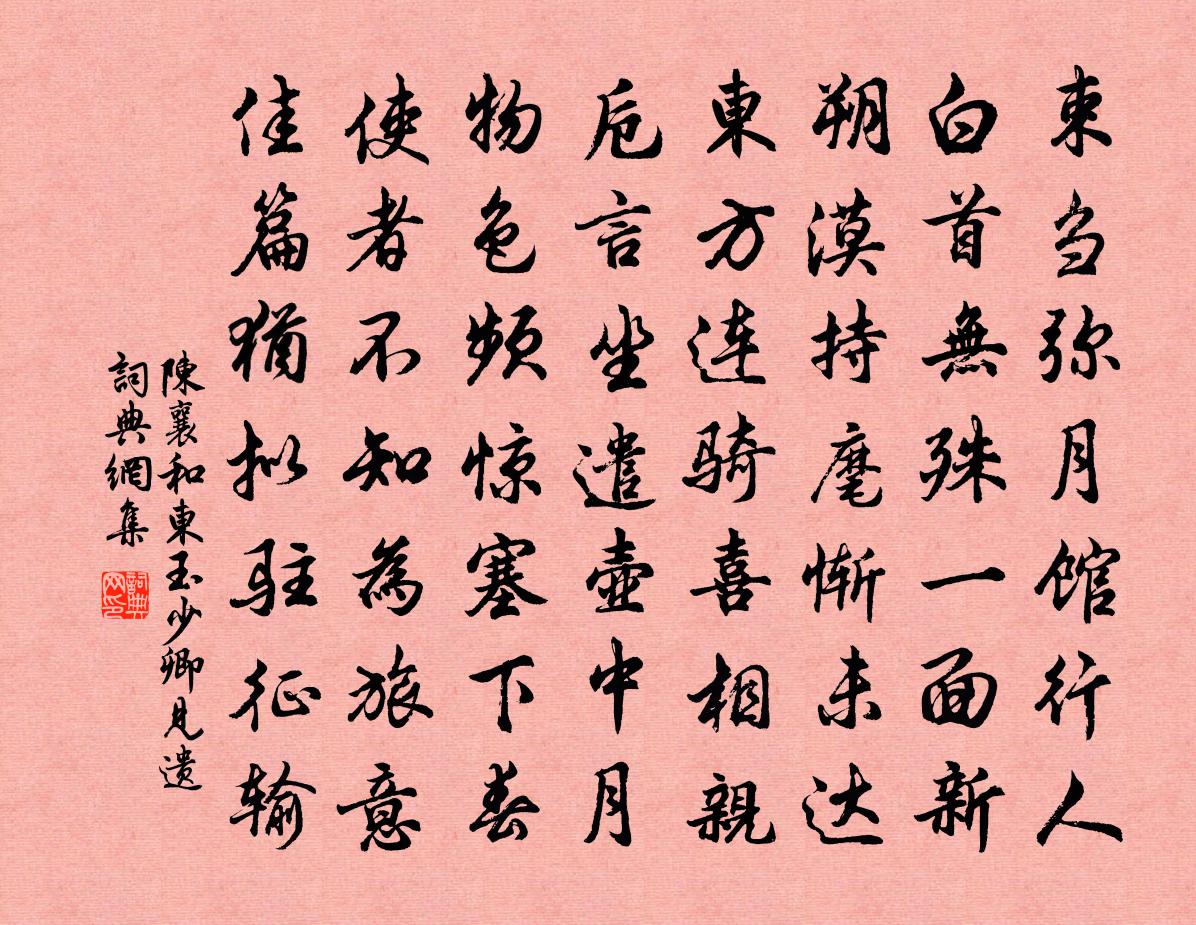 束刍弥月馆行人
白首無殊一面新
朔漠持麾惭未达
東方連骑喜相親
卮言坐遣壷中月
物色频惊塞下春
使者不知為旅意
佳篇猶拟驻征输
陳襄和東玉少卿見遗
詞典網集
詞典网印